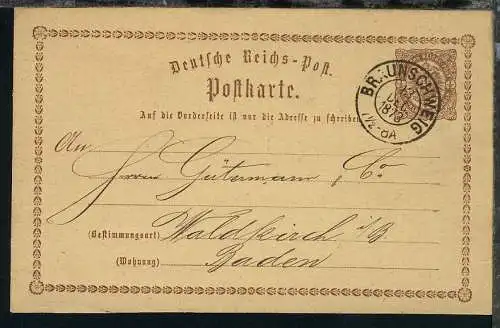 Deutsche Reichs-Post.
Postkarte.
BRAUNSCHWEIG
DEC
Auf die Vorderseite ist nur die Adresse zu schreiben
An
Herrn Gütermann & Co
(Bestimmungsort) Waldkirch i/B.
(Wohnung) Baden